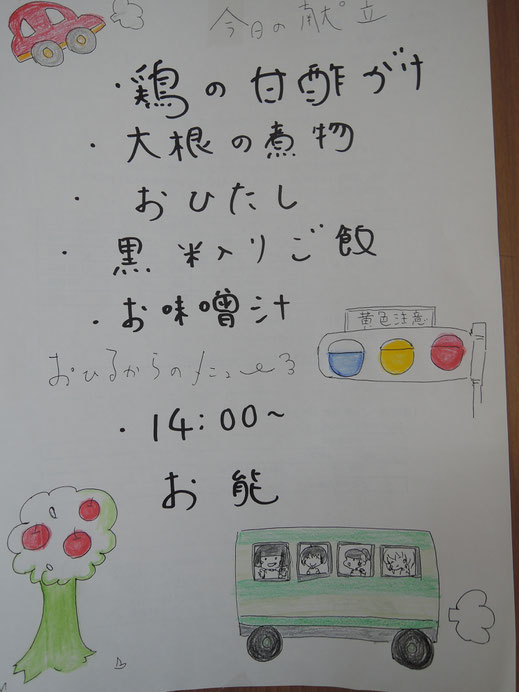 今日の献立
・鶏の甘酢がけ
・大根の煮物
・おひたし
・黒米入りご飯
・お味噌汁
黄色注意
おひるからのメニュー
・14:00~
お能